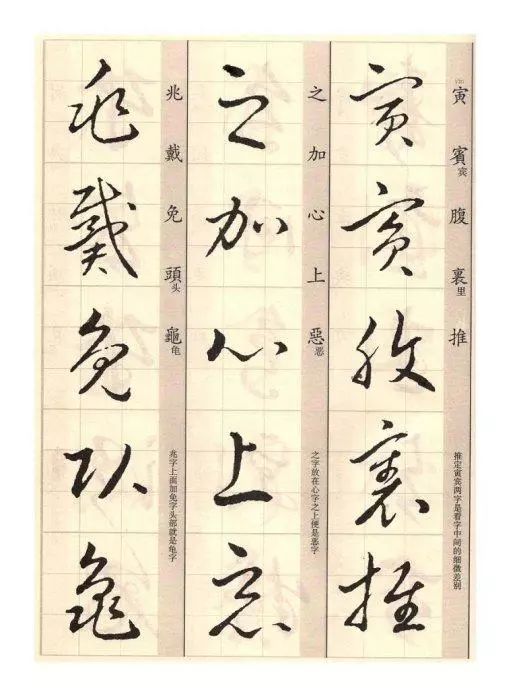 寅 賓宾 腹 裏里 推
推定寅宾两字是看字中间的细微差别
寅賓腹裏推
之 加 心 上 惡恶
之字放在心字之上便是恶字
之加心上惡
兆 戴 免 頭头 龜龟
兆字上面加免字头部就是龟字
兆戴免頭龜